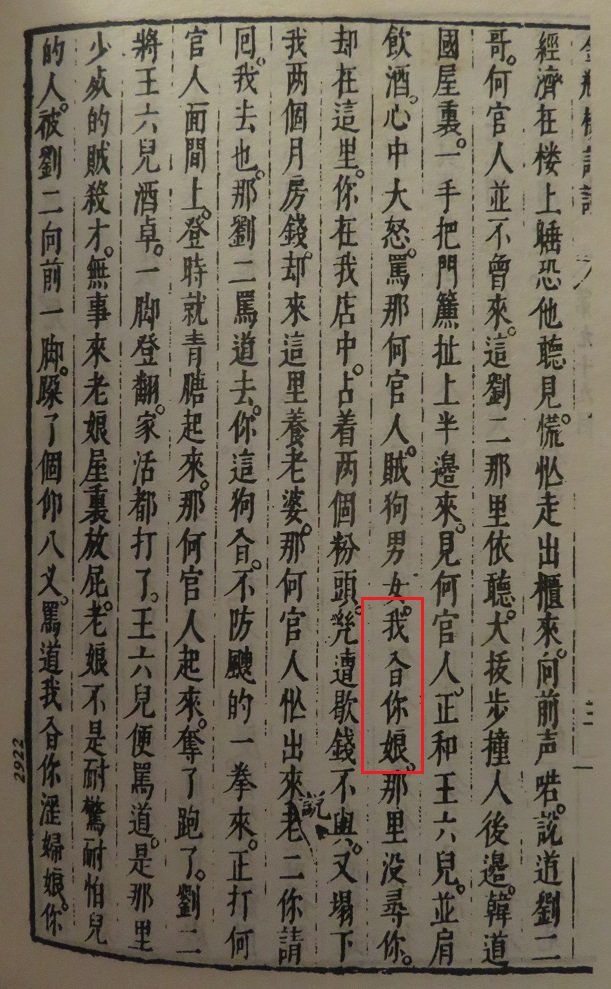 經濟在楼上恐他聽見。慌忙走出櫃來。向前声喏。說道劉二
哥。何官人並不曾來。這劉二那里依聽。大拔步撞入後邊。韓道
國屋裏。一手把門簾扯上半邊來。見何官人。正和王六兒並肩
飲酒。心中大怒。罵那何官人。賊狗男女。我㒲你娘。那里没尋你。
却在這里。你在我店中。占着两個粉頭。凢遭歇錢不與。又塌下
我两個月房錢。却來這里養老婆。那何官人忙出來說老二你請
囘。我去也。那劉二罵道去。你這狗㒲。不防颼的一拳來。正打何
官人面間上。登時就青膧起來。那何官人起來。奪了跑了。劉二
將王六兒酒卓。一脚登翻。家活都打了。王六兒便罵道。是那里
少死的賊殺才。無事來老娘屋裏放屁。老娘不是耐驚耐怕兒
的人。被劉二向前一脚。跺了個仰八叉。罵道我㒲你淫婦娘。你
2922